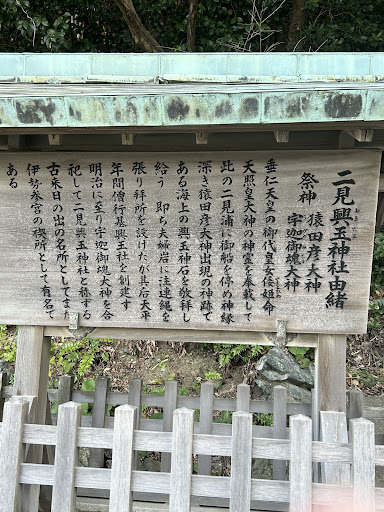 二見興玉神社由緒
おきたま
祭神
猿田彦大神
宇迦御魂大神
垂仁天皇の御代皇女倭姫命
天照皇大神の神霊を奉戴して
此の二見浦に御船を停め神縁
深き猿田彦大神出現の神跡で
ある海上の興玉神石を敬拝し
給う 即ち夫婦岩に注連縄を
張り拝所を設けたが其后天平
年間僧行基興玉社を創建す
明治に至り宇迦御魂大神を合
祀して二見興玉神社と称する
古来日の出の名所としてまた
伊勢参宮の禊所として有名で
ある